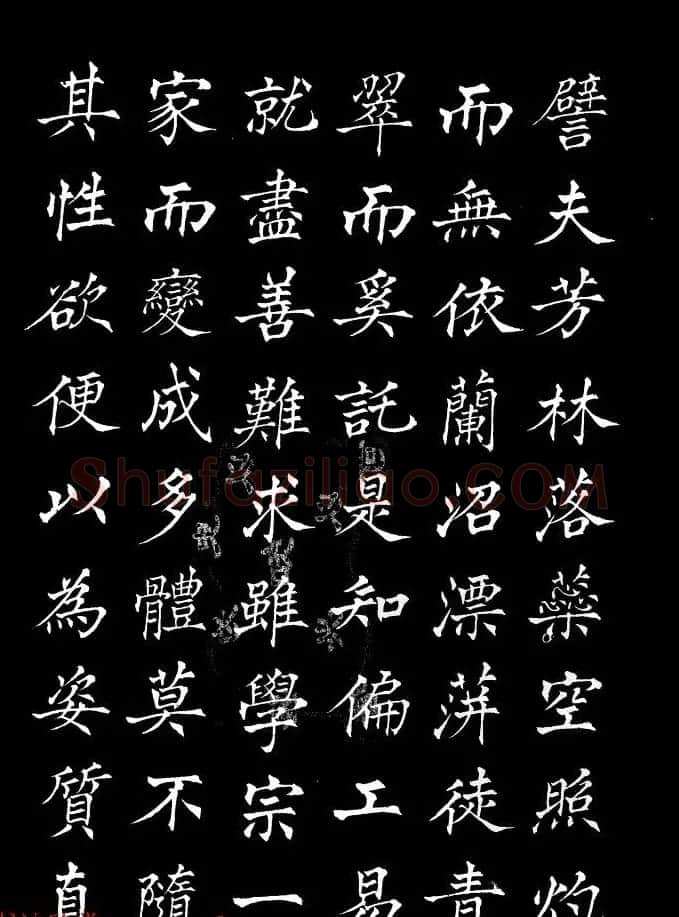 譬夫芳林落蘂空照灼
而無依蘭沼漂蓱徒青
翠而奚託是知偏工易
就盡善難求雖學宗一
家而變成多體莫不隨
其性欲便以為姿質直
Shufaziliao.COM